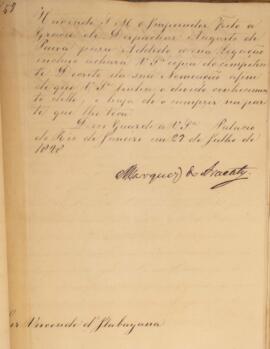 Havendo S. M. o Imperador Feito a
Graça de Despachar Augusto de
Paiva para Addido a essa Legação
incluso achará V. Sª copia do competen
te Decreto da sua Nomeação afim
de que V. Sª tenha o devido conhecimen
to delle, e haja de o cumprir na par
te que lhe toca.
Deos Guarde a V. Sª Palacio
do Rio de Janeiro em 27 de Julho de
1828
Marquez de Aracaty
Visconde d'Itabayana